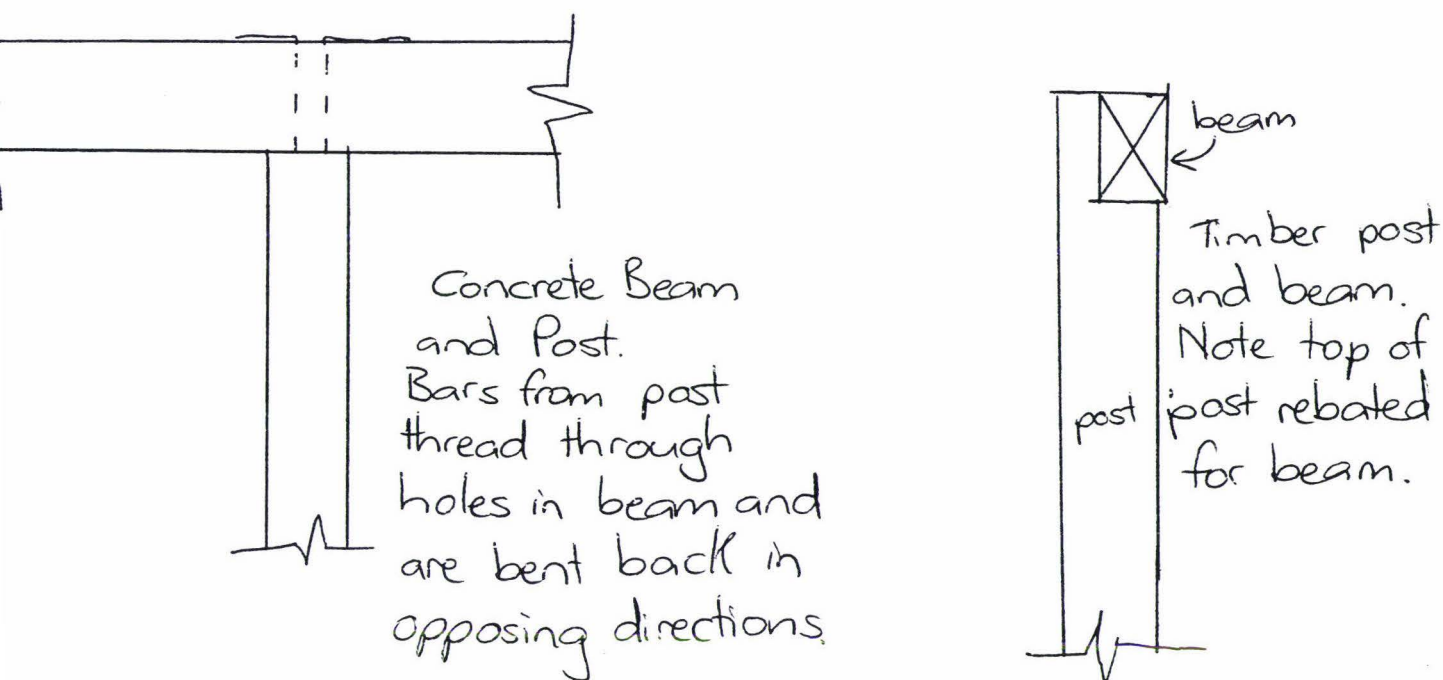 Concrete Beam
and Post.
Bars from post
thread through
holes in beam and
are bent back in
opposing directions.
beam
Timber post
and beam.
Note top of
post rebated
for beam.
post